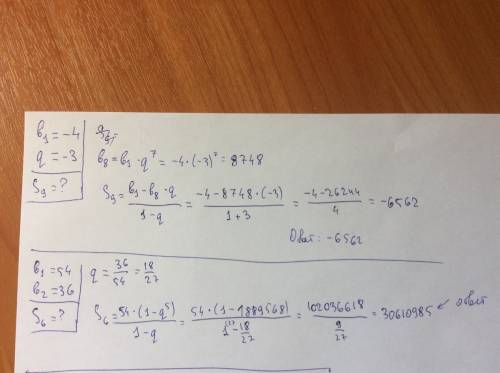 b₁ = -4
q = -3
S₉ = ?
b₈ = b₁ · q⁷ = -4 · (-3)⁷ = 8748
S₉ = (b₁ - b₈ · q)/(1 - q) = (-4 - 8748 · (-3))/(1 + 3) = (-4 - 26244)/4 = -6562
Ответ: -6562
b₁ = 54
b₂ = 36
S₆ = ?
q = 36/54 = 18/27
S₆ = 54 · (1 - q⁵)/(1 - q) = 54 · (1 - 1889568)/(1 - 18/27) = 102036618/(9/27) = 30610985 ответ